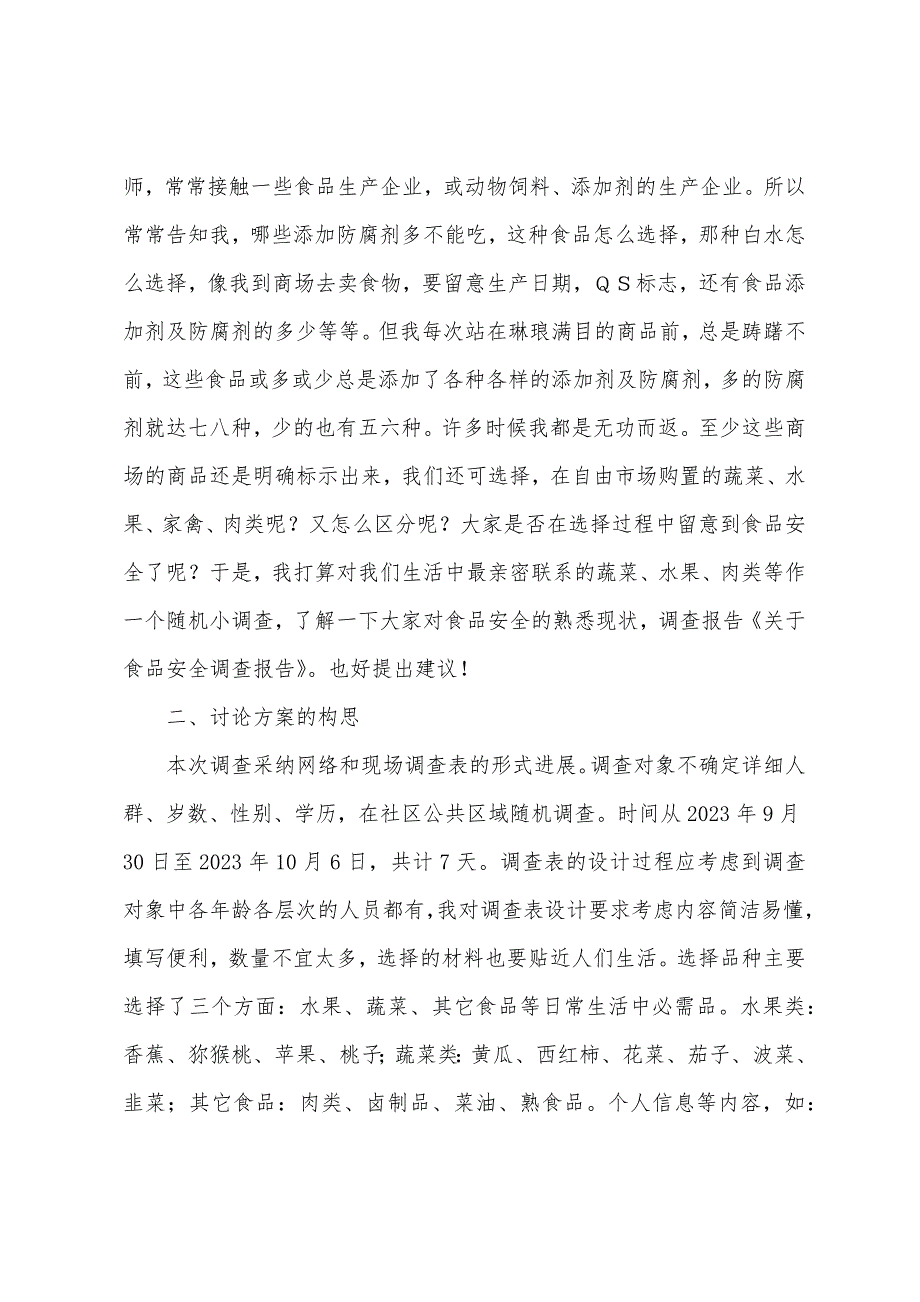 师，常常接触一些食品生产企业，或动物饲料、添加剂的生产企业。所以
常常告知我，哪些添加防腐剂多不能吃，这种食品怎么选择，那种白水怎
么选择，像我到商场去卖食物，要留意生产日期，ＱＳ标志，还有食品添
加剂及防腐剂的多少等等。但我每次站在琳琅满目的商品前，总是踌躇不
前，这些食品或多或少总是添加了各种各样的添加剂及防腐剂，多的防腐
剂就达七八种，少的也有五六种。许多时候我都是无功而返。至少这些商
场的商品还是明确标示出来，我们还可选择，在自由市场购置的蔬菜、水
果、家禽、肉类呢？又怎么区分呢？大家是否在选择过程中留意到食品安
全了呢？于是，我打算对我们生活中最亲密联系的蔬菜、水果、肉类等作
一个随机小调查，了解一下大家对食品安全的熟悉现状，调查报告《关于
食品安全调查报告》。也好提出建议！
二、讨论方案的构思
本次调查采纳网络和现场调查表的形式进展。调查对象不确定详细人
群、岁数、性别、学历，在社区公共区域随机调查。时间从 2023 年 9 月
30 日至 2023 年 10 月 6 日，共计 7 天。调查表的设计过程应考虑到调查
对象中各年龄各层次的人员都有，我对调查表设计要求考虑内容简洁易懂，
填写便利，数量不宜太多，选择的材料也要贴近人们生活。选择品种主要
选择了三个方面：水果、蔬菜、其它食品等日常生活中必需品。水果类：
香蕉、猕猴桃、苹果、桃子；蔬菜类：黄瓜、西红柿、花菜、茄子、波菜、
韭菜；其它食品：肉类、卤制品、菜油、熟食品。个人信息等内容，如：